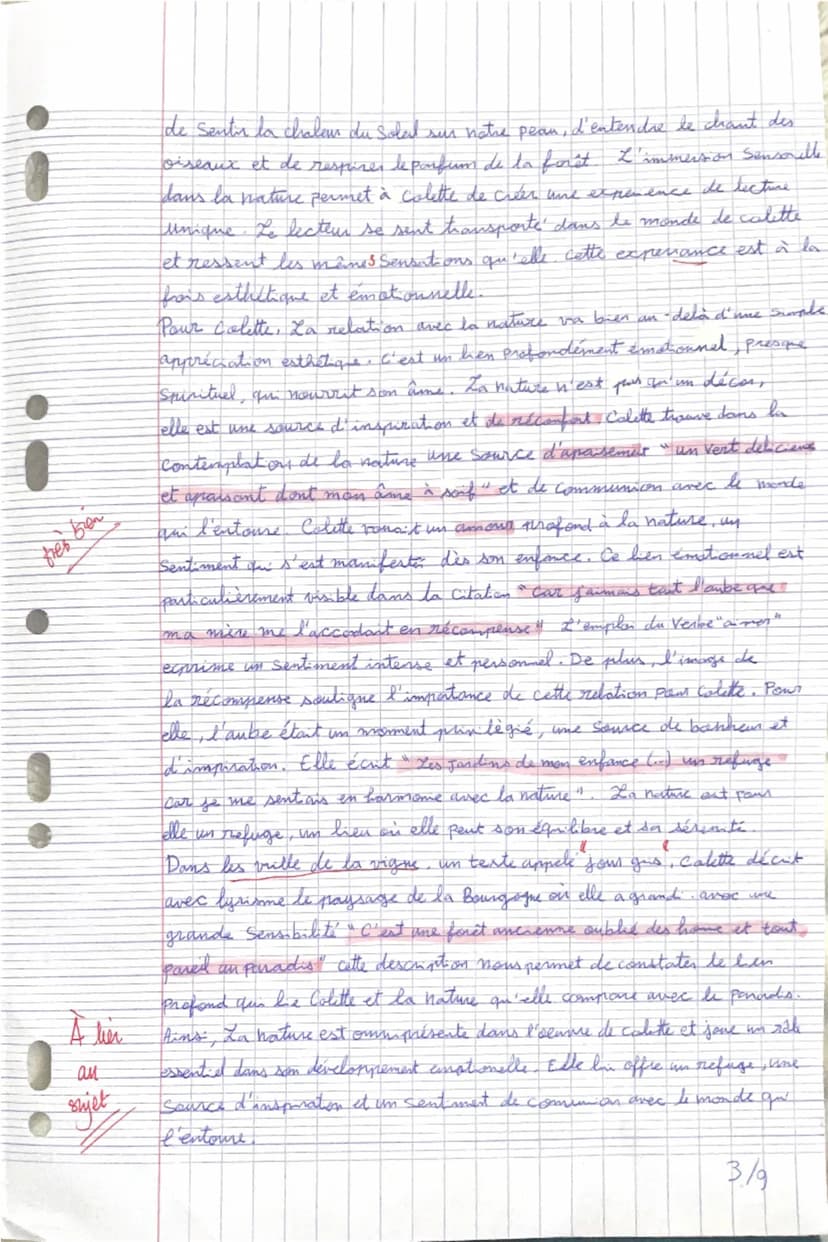 de sentir la chaleur du Soleil sur notre peau, d'entendre le chant des
oiseaux et de respirer le parfum de la forêt. L'immersion Sensorielle
dans la nature permet à Colette de créer une experience de lecture
unique. Le lecteur se sent transporté dans le monde de colette
et ressent les mêmes Sensations qu'elle. Cette experiance est à la
fois esthétique et émotionnelle.
Pour Colette, La relation avec la nature va bien au-delà d'une simple
appréciation esthétique. C'est un lien profondément émotionnel, presque
Spirituel, qui nourrit son âme. La nature n'est pas qu'un décor,
elle est une source d'inspiration et de réconfort. Colette trouve dans la
Contemplation de la nature une source d'apaisement "un vert delicieux
et apaisant dont mon âme à soif" et de communion avec le monde
qui l'entoure. Colette vouait un amour profond à la nature, un
très bien
Sentiment qui s'est manifesté dès son enfance. Ce lien émotionnel est
particulièrement visible dans la citation "Car j'aimais tant l'aube que
ma mère me l'accordait en récompense" L'emploi du Verbe "aimer"
exprime un sentiment intense et personnel. De plus, l'image de
la récompense souligne l'importance de cette relation pour Colette. Pour
elle, l'aube était un moment privilègié, une source de bonheur et
d'inspiration. Elle écrit "Les Jardins de mon enfance (...) un refuge
car je me sentais en harmonie avec la nature". La nature est pour
elle un refuge, un lieu où elle peut son équilibre et sa sérénité.
Dans les vrille de la vigne, un texte appelé "jour gris", Colette décrit
avec lyrisme le paysage de la Bourgogne où elle a grandi avec une
grande Sensibilité "C'est une forêt ancienne oublié des home et tout
pareil au paradis" cette description nous permet de constater le lien
Profond qui lie Colette et la nature qu'elle compare avec le paradis.
À lier
au
sujet
Ainsi, La nature est omniprésente dans l'oeuvre de colette et joue un rôle
essentiel dans son développement emotionelle. Elle lui offre un refuge, une
Source d'inspiration et un sentiment de comunion avec le monde qui
l'entoure.
3/9